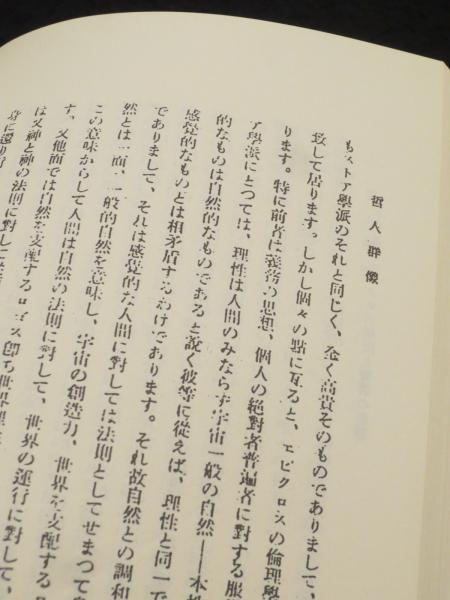 哲人群像
もストア學派のそれと同じく、全く高貴そのものでありまして、
致して居ります。しかし個々の點に亙ると、エピクロスの倫理學
ります。特に前者は義務の思想、個人の絶對者普遍者に對する服
ア學派にとつては、理性は人間のみならず宇宙一般の自然――本性
的なものは自然的なものであると說く彼等に從えば、理性と同一で
感覺的なものとは相矛盾するわけであります。それ故自然との調和
でありまして、それは感覺的な人間に對しては法則としてせまつて
然とは一面、一般的自然を意味し、宇宙の創造力、世界を支配する
この意味からして人間は自然の法則に對して、世界の運行に對して、
す。又他面では自然を支配するロゴス卽ち世界理
は又神と神の法則に對し